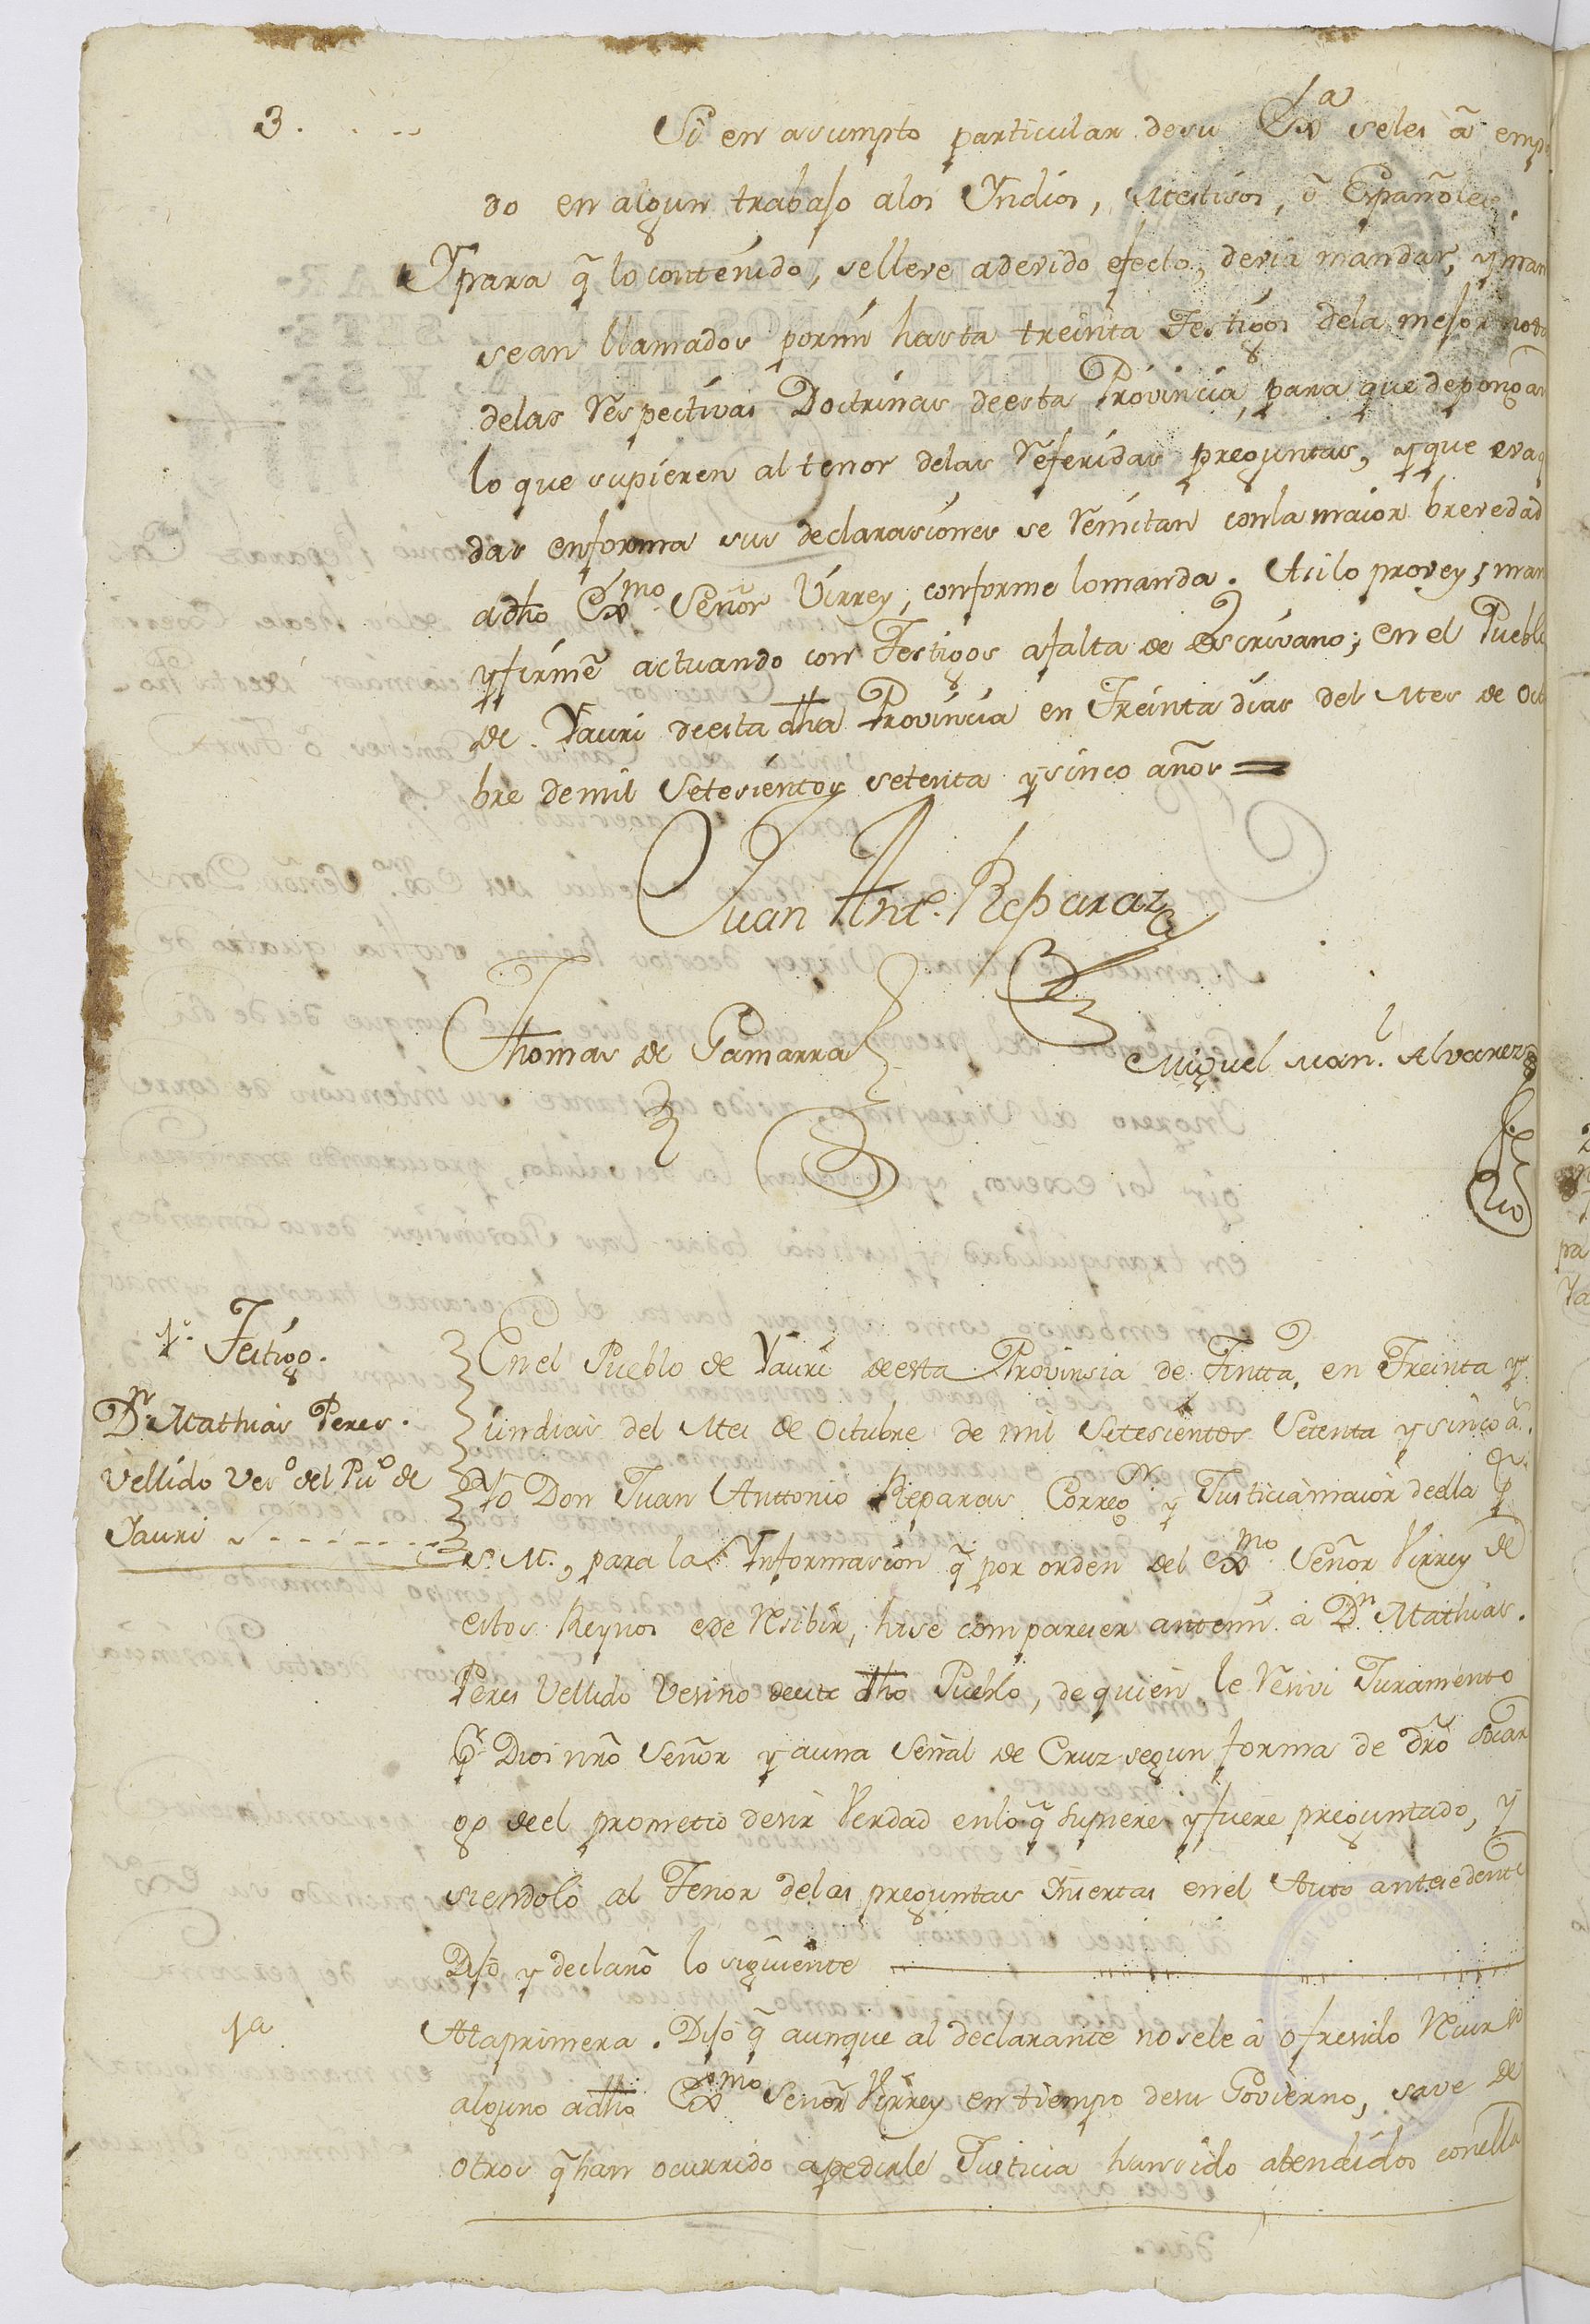 3. . . .
Si en asumpto particular desu Exa seles â emp
do en algun trabajo alos Yndios, Mestisos, ô Españoles.
Ypara q̃ lo contenido, sellere aderido efecto, deria mandar, yman
sean llamados pormi hasta treinta Testigos dela mejor nota
delas Respectivas Doctrinas deesta Provincia, para que depongan
lo que supieren al tenor delas Referidas preguntas, yque evaq
das enforma sus declarasiones se Remitan conla maior brevedad
adho Exmo Señor Virrey, conforme lomanda. Asilo provey, man
yfirmè actuando con Testigos afalta de Escrivano; en el Pueblo
de Yauri deesta dha Provincia en Treinta dias del Mes de Oct
bre demil Setesientos setenta ysinco años =
Juan Anto. Reparaz
Thomas de Gamarra
Miguel Manl. Alvarez
1o. Testigo.
Dn. Mathias Peres.
Vellido Veso del Puo de
Yauri
En el Pueblo de Yauri deesta Provinsia de Tintta, en Treinta y
undias del Mes de Octubre de mil Setesientos Setenta ysinco as.
Yo Don Juan Anttonio Reparas Corregor. y Justicia maior deella p
S. M., para la Informasion q̃ por orden del Exmo Señor Virrey de
estos Reynos e de Resibir, hise compareser antemi à Dn Mathias.
Peres Vellido Vesino deeste dho Pueblo, de quien le Resivi Juramento
pr. Dios nrõ Señor y auna Señal de Cruz segun forma de drõ so car
go deel prometio desir Verdad enlo q̃ supiere, yfuere preguntado, y
siendolo al Tenor delas preguntas Ynsertas enel Auto antesedente
Dijo y declarô lo siguiente
1a
Ala primera. Dijo q̃ aunque al declarante nosele à ofresido Recurso
alguno adho Exmo Señor Virrey en tiempo desu Govierno, save de
otros q̃ han ocurrido apedirle Justicia han sido atendidos conella